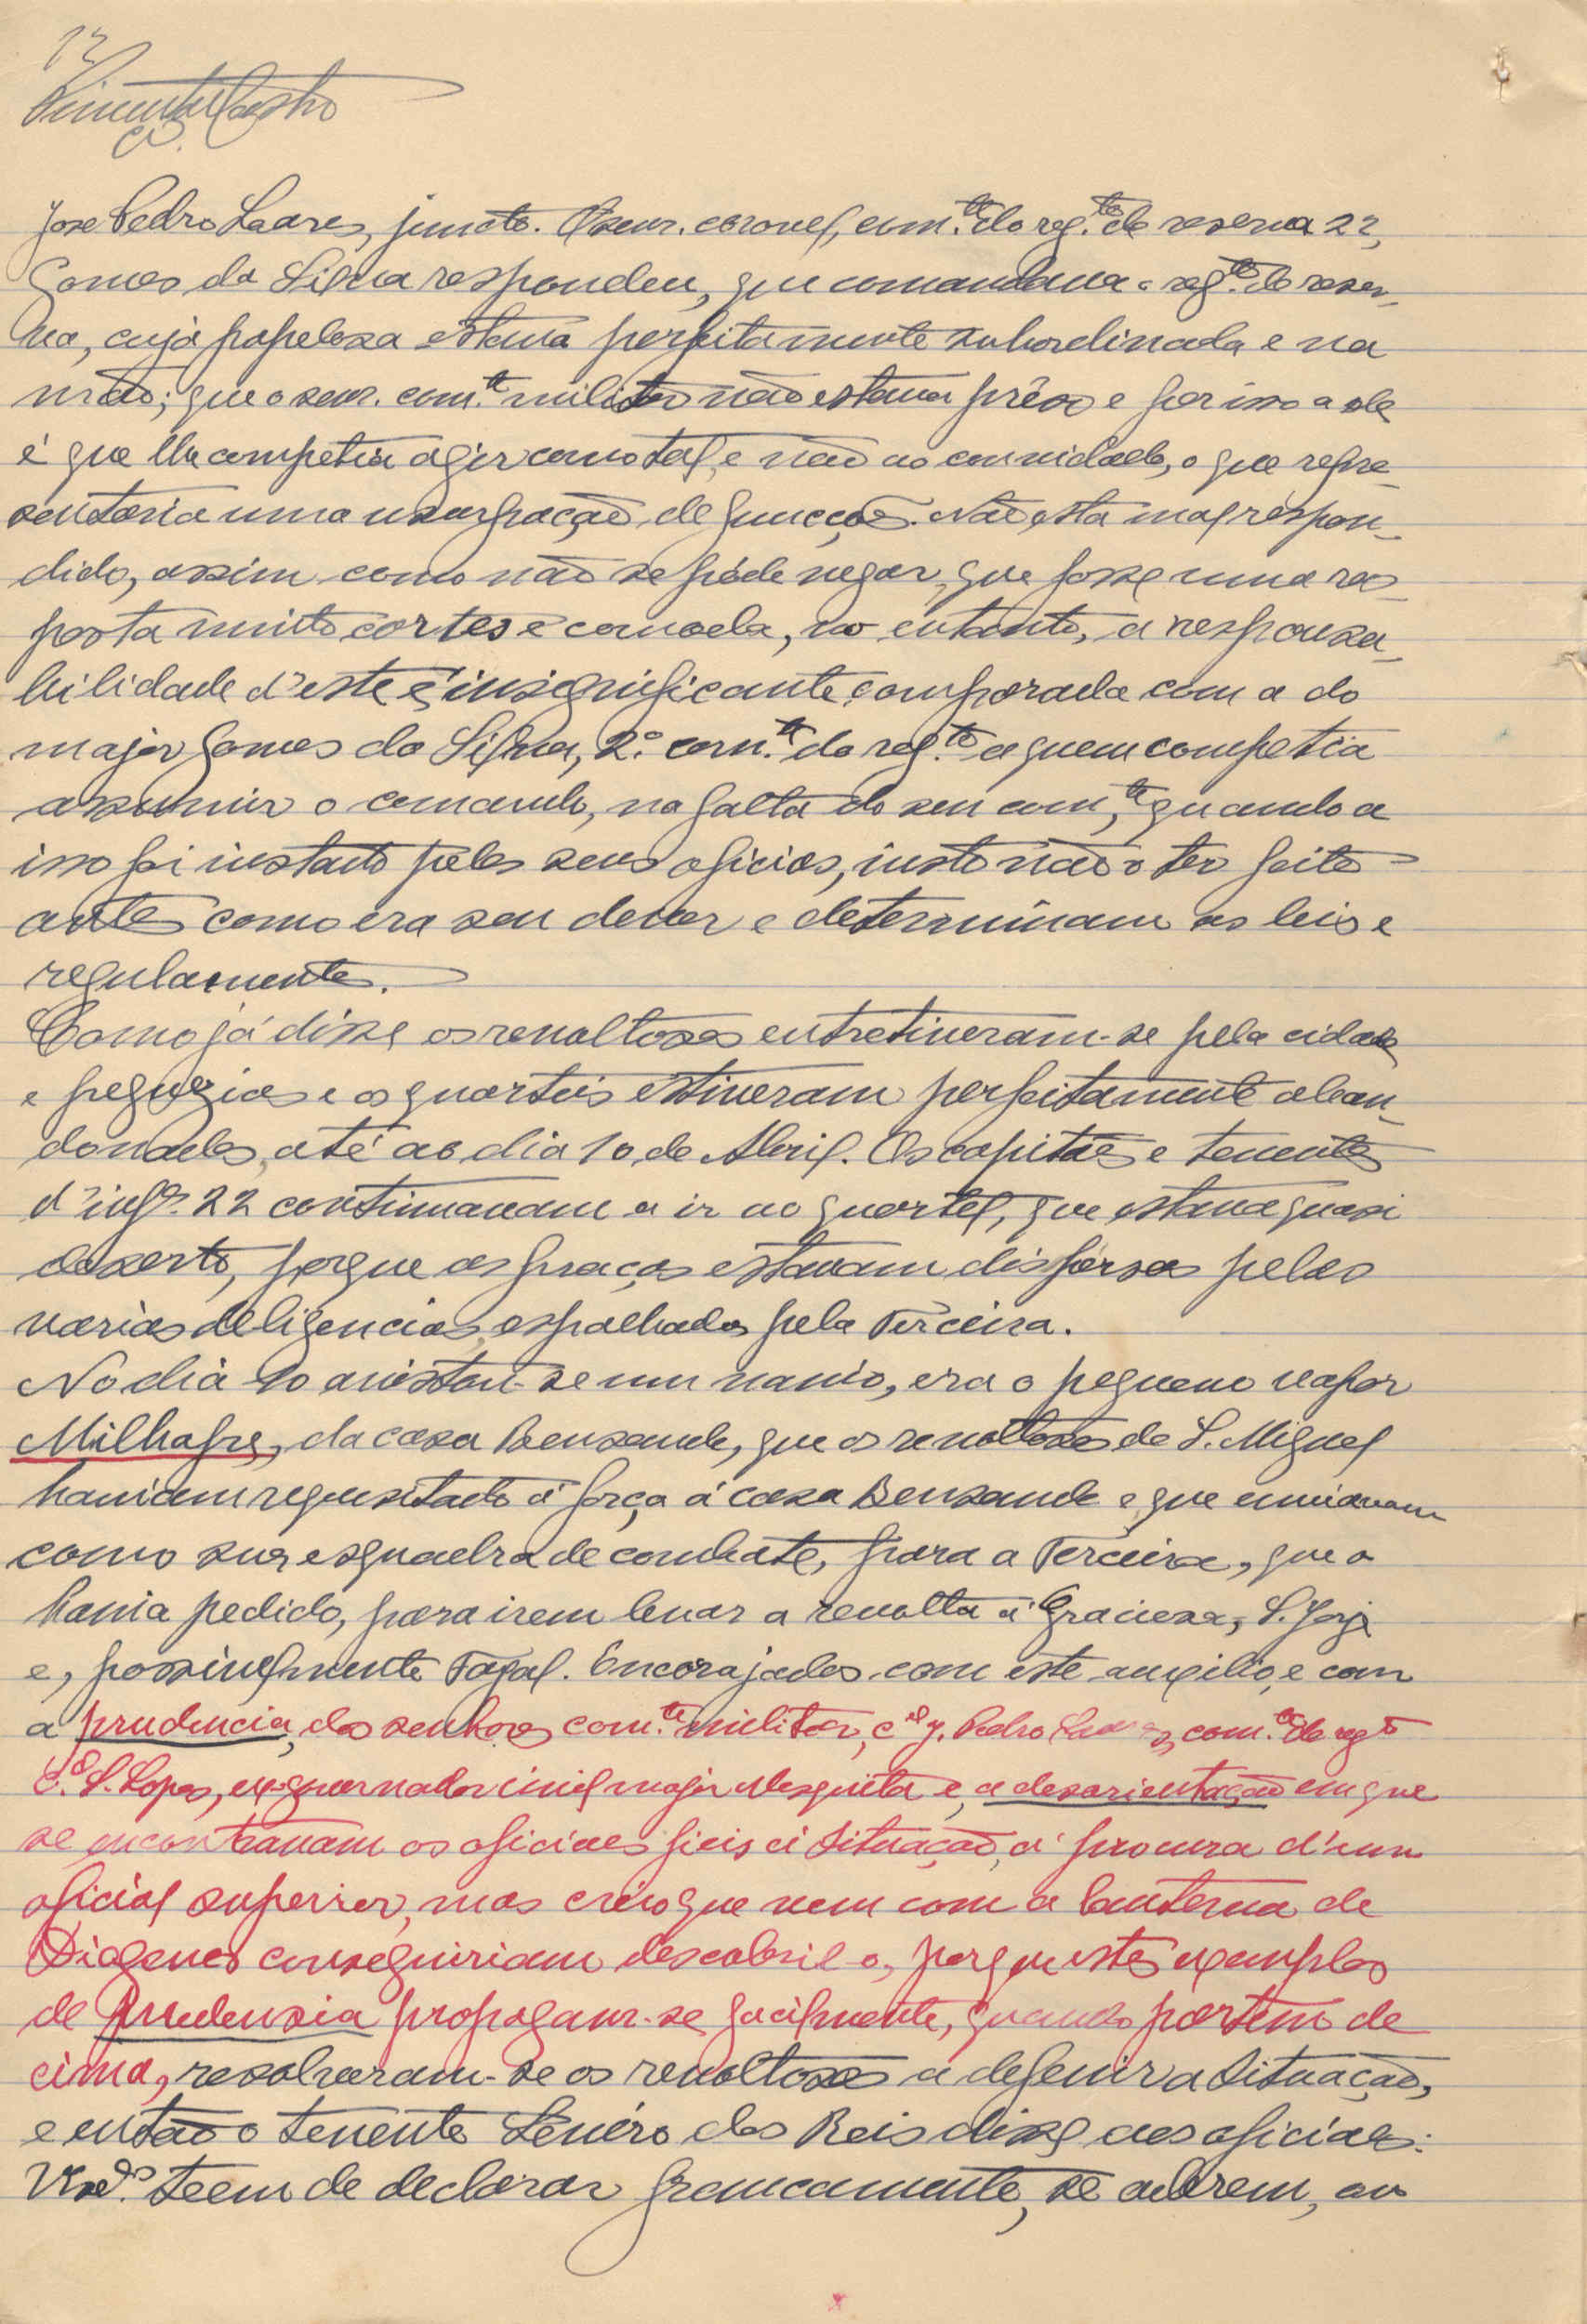 12
Pimentel Castro
José Pedro Soares, juncto. O snr. coronel, com.te do reg.to de reserva 22,
Gomes da Silva respondeu, que comandava o reg.to de reser-
va, cuja papelosa estava perfeitamente subordinada e na
mão; que o snr. com.te militar não estava prêso e por isso a ele
é que lhe competia agir como tal, e não ao convidado, o que repre-
sentaria uma usurpação, de funcções. Não está mal respon-
dido, assim como não se póde negar, que fosse uma res-
posta muito cortes e comoda, no entanto, a responsa-
bilidade d'este é insignificante, comparada com a do
major Gomes da Silva, 2.º com.te do reg.to a quem competia
assumir o comando, na falta do seu com.te, quando a
isso foi instado pelos seus oficiaes, visto não o ter feito
antes como era seu dever e determinam as leis e
regulamentos.
Como já disse os revoltosos entretiveram-se pela cidade
e freguezias e os quarteis estiveram perfeitamente aban-
donados, até ao dia 10 de Abril. Os capitães e tenentes
d'inf.ª 22 continuavam a ir ao quartel, que estava quasi
deserto, porque as praças estavam dispersas pelas
varias deligencias, espalhadas pela Terceira.
No dia 10 avistou-se um navio, era o pequeno vapor
Milhafre, da casa Bensaude, que os revoltosos de S. Miguel
haviam requesitado á força á casa Bensaude e que enviavam
como sua esquadra de combate, para a Terceira, que o
havia pedido, para irem levar a revolta á Graciosa, S. Jorge
e, possivelmente Faial. Encorajados com este auxilio, e com
a prudencia, dos senhores com.te militar, c.el J. Pedro Soares, com.te do reg.to
c.el S. Lopes, ex-governador civil major Mesquita e, a desorientação em que
se encontravam os oficiaes fieis á situação, á procura d'um
oficial superior, mas creio que nem com a lanterna de
Diogenes conseguiriam descobril-o, porque estes exemplos
de prudensia propagam-se facilmente, quando partem de
cima, resolveram-se os revoltosos a defenir a situação,
e então o tenente Lenéro dos Reis disse aos oficiaes:
teem de declarar francamente, se aderem, ou